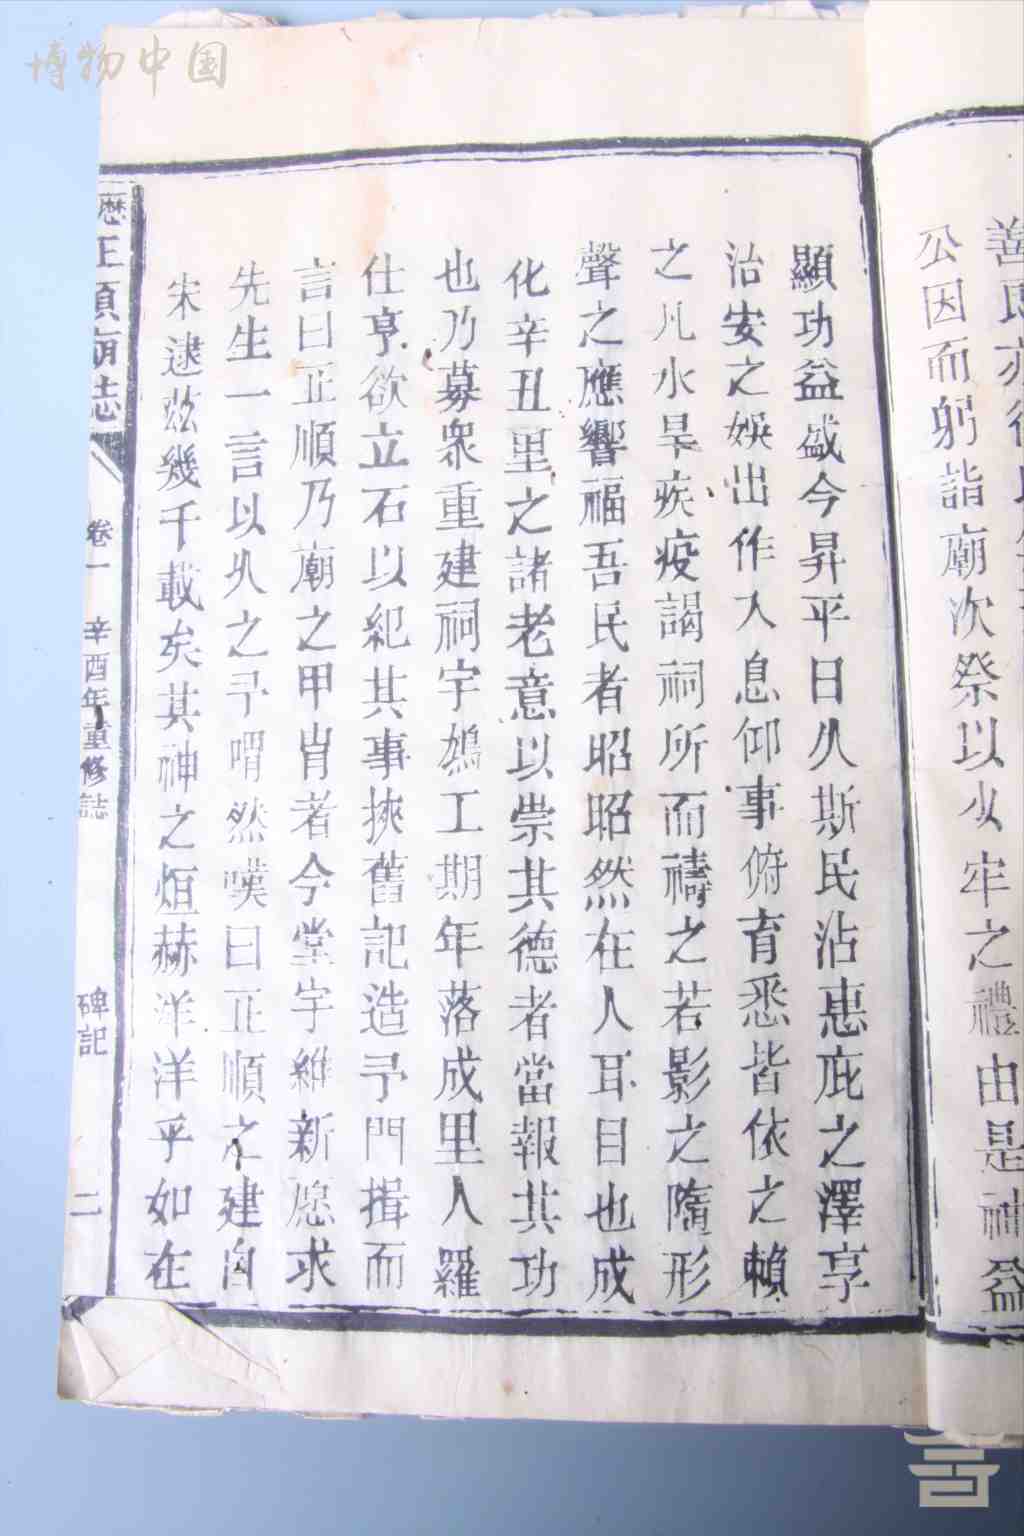 公因而躬詣廟次祭以少牢之禮由是神益
顯功益盛今昇平日久斯民沾惠庇之澤享
治安之娛出作入息仰事俯育悉皆依之賴
之凡水旱疾疫謁祠所而禱之若影之隨形
聲之應響福吾民者昭昭然在人耳目也成
化辛丑里之諸老意以崇其德者當報其功
也乃募眾重建祠宇鳩工期年落成里人羅
仕亨欲立石以紀其事挾舊記造予門揖而
言曰正順乃廟之甲肖者今堂宇維新愿求
先生一言以久之予喟然嘆曰正順之建自
宋逮茲幾千載矣其神之烜赫洋洋乎如在
歷正順廟志
卷一
辛酉年重修誌
碑記
二
博物中国